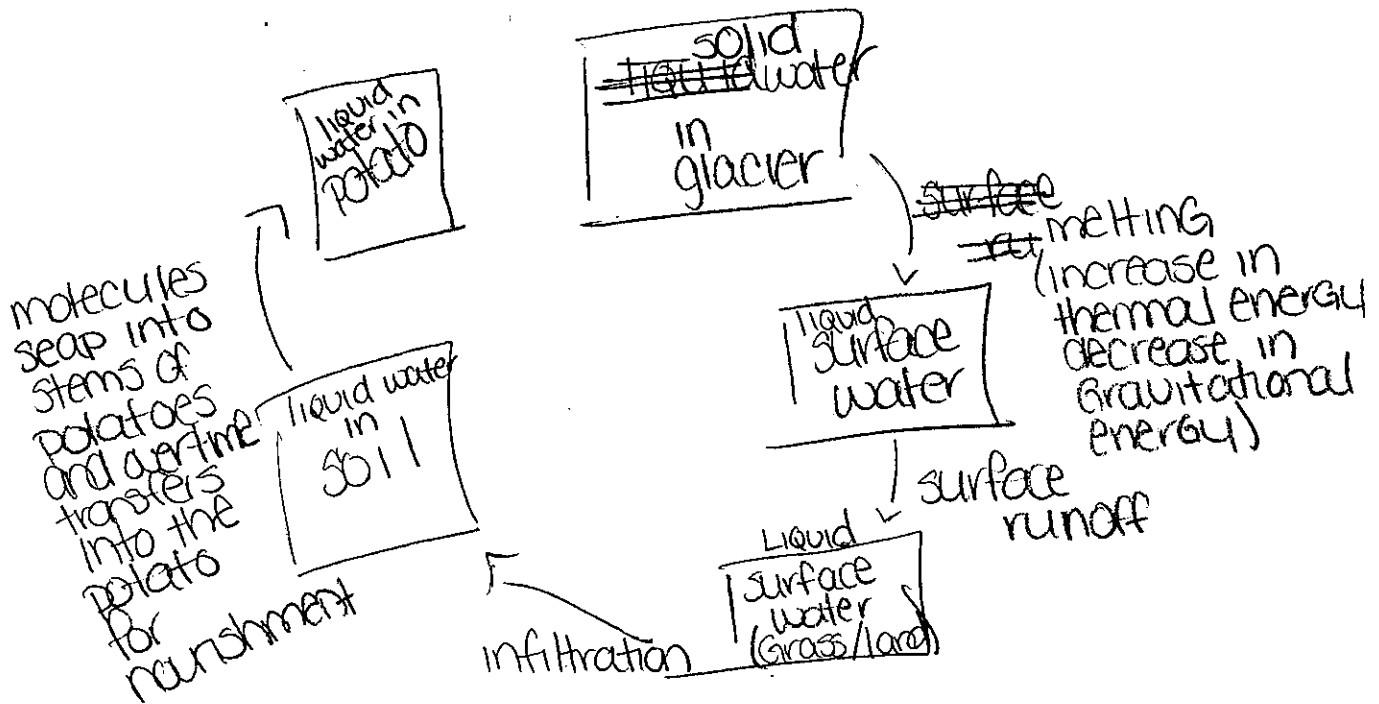 solid
liquid water
in
glacier
surface
melting
(increase in
thermal energy
decrease in
Gravitational
energy)
liquid
surface
water
surface
runoff
Liquid
surface
water
(Grass/land)
infiltration
liquid water
in
soil
molecules
seap into
stems of
potatoes
and overtime
transfers
into the
potato
for
nourishment
liquid
water in
potato